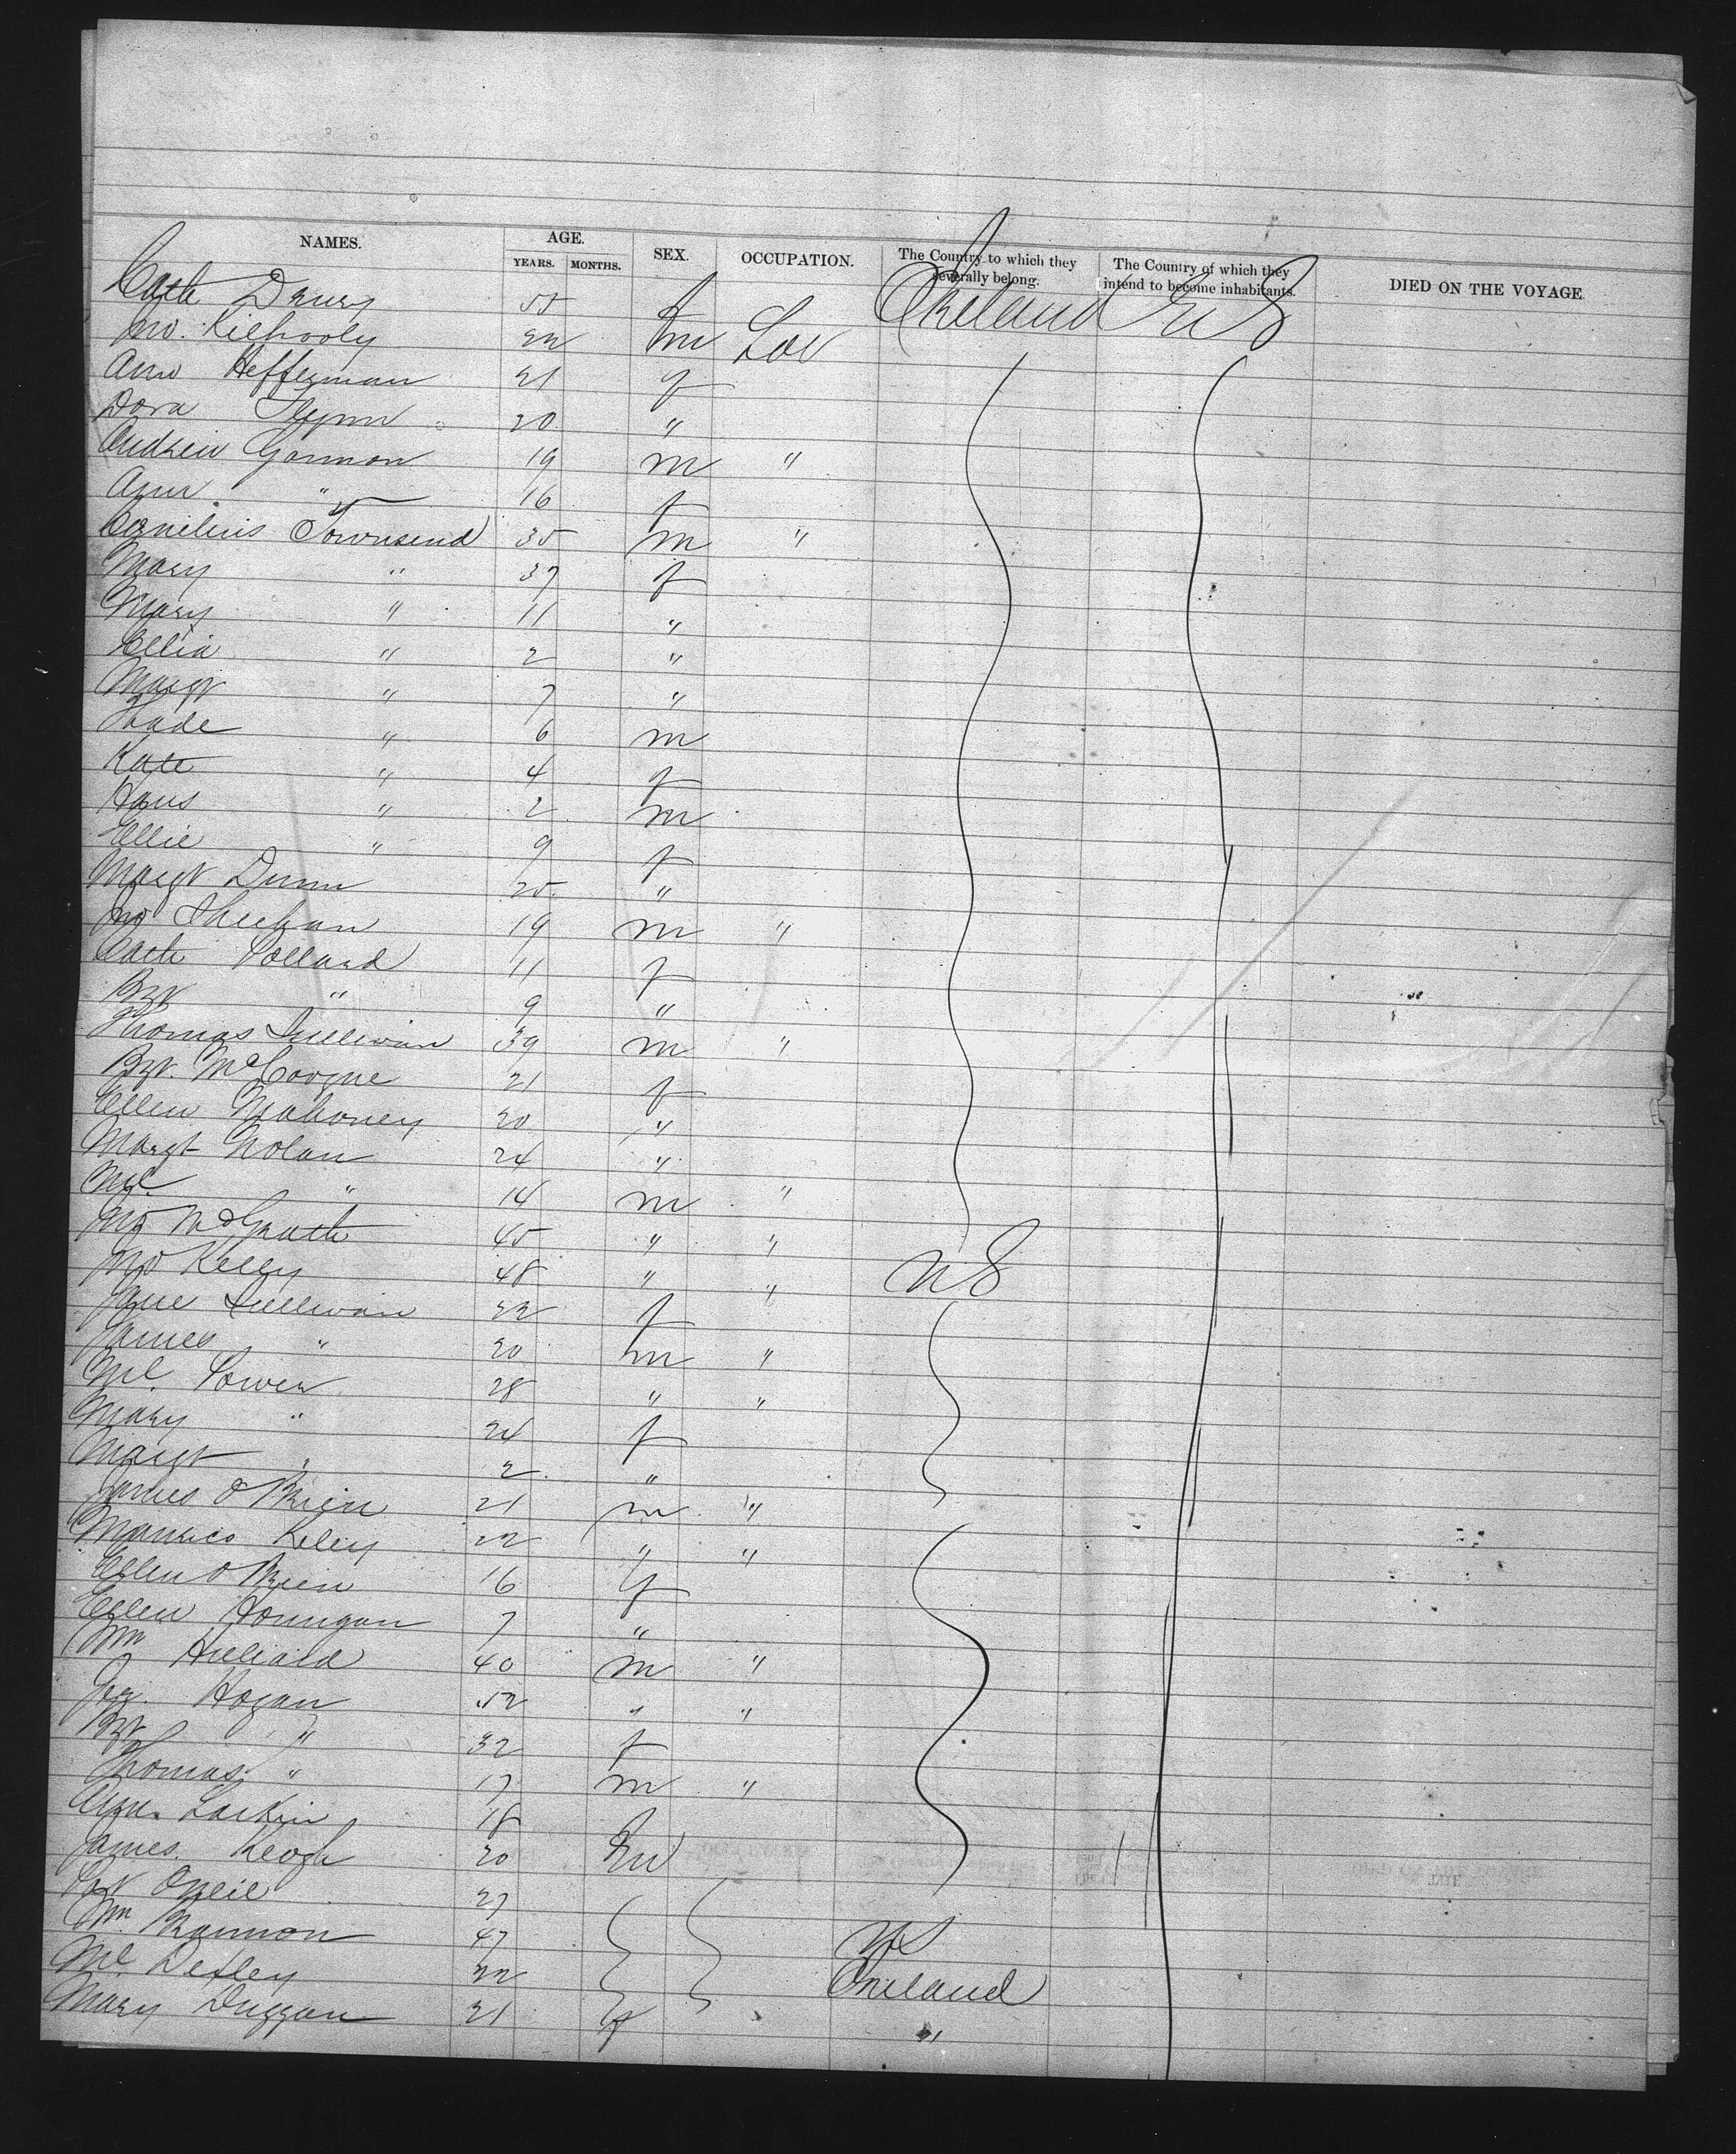 NAMES. AGE. YEARS. MONTHS. SEX. OCCUPATION. The Country to which they severally belong. The Country of which they intend to become inhabitants. DIED ON THE VOYAGE.
Cath Drury 55 f Ireland U S
Jno. Kilhooly 22 m Lab
Ann Heffernan 21 f
Dora Flynn 20 "
Andrew Gannon 19 m "
Ann " 16 f
Cornelius Townsend 35 m "
Mary " 37 f
Mary " 11 "
Ellia " 2 "
Margt " 7 "
Thade " 6 m
Kate " 4 f
Hans " 2 m
Ellie " 9 f
Margt Dunn 25 "
Jno Sheehan 19 m "
Cath Pollard 11 f
Bgt " 9 "
Thomas Sullivan 39 m "
Bgt. 21 f
Ellen Mahoney 20 "
Margt Nolan 24 "
Ml " 14 m "
Jno McGrath 45 " "
Jno Kelly 48 " " U S
Jane Sullivan 22 f
James " 20 m "
Ml. Power 28 " "
Mary " 24 f
Margt " 2 "
James O Brien 21 m "
Maurice Kelly 22 " "
Ellen O Brien 16 f
Ellen Honnigan 7 "
Wm Hilliard 40 m "
Hogan 52 " "
Bgt " 32 f
Thomas " 17 m "
Ann Larkin 18
James Keogh 20 m
Pat ONeil 27
Wm. Bannon 47 U S
Ml Defley 22 Ireland
Mary Duggan 21 f "